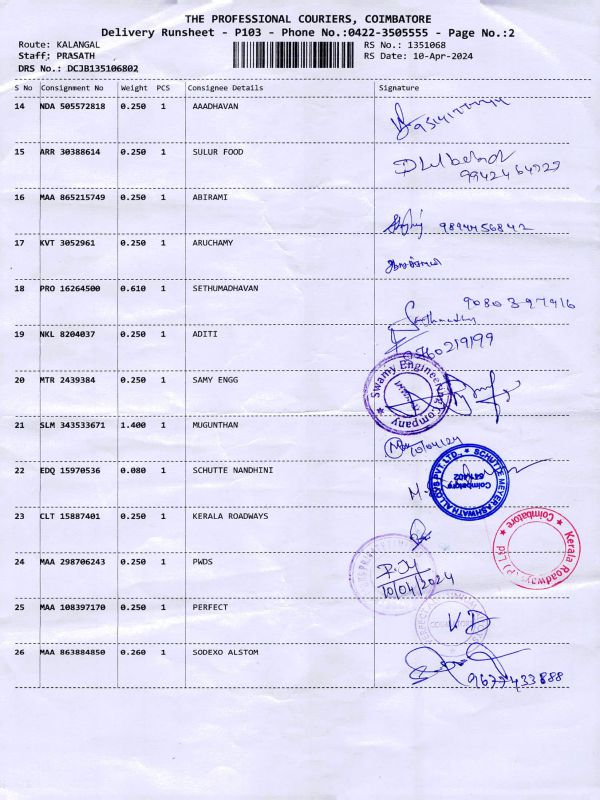 THE PROFESSIONAL COURIERS, COIMBATORE
Delivery Runsheet - P103 - Phone No.:0422-3505555 - Page No.:2
Route: KALANGAL
RS No.: 1351068
Staff: PRASATH
RS Date: 10-Apr-2024
DRS No.: DCJB135106802
S No Consignment No Weight PCS Consignee Details Signature
14 NDA 505572818 0.250 1 AAADHAVAN
15 ARR 30388614 0.250 1 SULUR FOOD
16 MAA 865215749 0.250 1 ABIRAMI
9894456842
17 KVT 3052961 0.250 1 ARUCHAMY
18 PRO 16264500 0.610 1 SETHUMADHAVAN
9080397916
19 NKL 8204037 0.250 1 ADITI
20 MTR 2439384 0.250 1 SAMY ENGG
Swamy Engineering Company
21 SLM 343533671 1.400 1 MUGUNTHAN
10/04/24
22 EDQ 15970536 0.080 1 SCHUTTE NANDHINI
SCHUTTE MEYER ASHWATH ALLOYS PVT. LTD.,
Coimbatore
641 402
23 CLT 15887401 0.250 1 KERALA ROADWAYS
Kerala Roadways (P) Ltd
Coimbatore
24 MAA 298706243 0.250 1 PWDS
10/04/2024
25 MAA 108397170 0.250 1 PERFECT
VD
26 MAA 863884850 0.260 1 SODEXO ALSTOM
9677433888